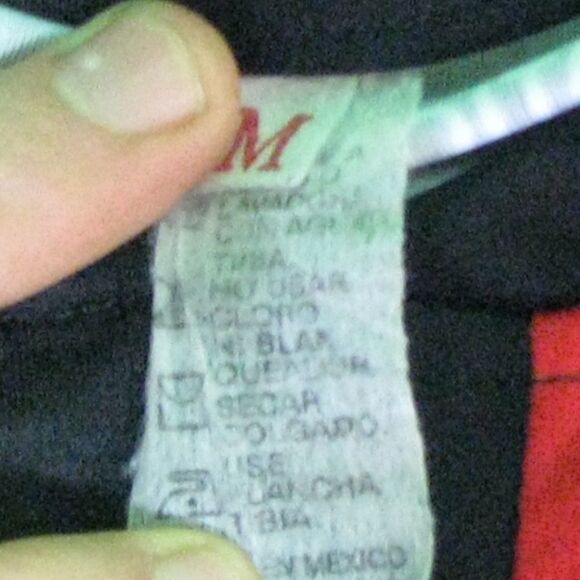 M
CON AGUA
TIBIA
NO USAR
CLORO
NI BLAN
QUEADOR
SECAR
COLGADO
USE
PLANCHA
TIBIA
MEXICO